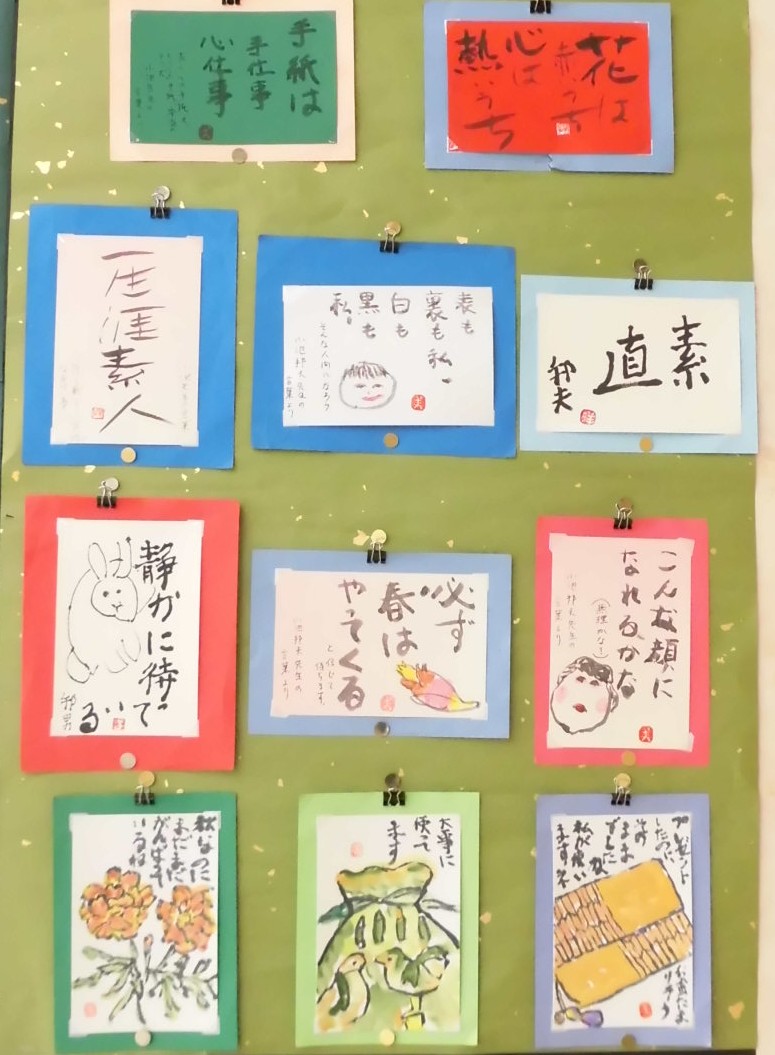 手紙は
手仕事
心仕事
花は
赤いうち
心は
熱いうち
一生涯素人
表も
裏も私、
白も
黒も
私。
そんな人間になろう
小池邦夫先生の
言葉より
素
直
邦夫
静かに待て
る
必ず
春は
やってくる
と信じて
待ちます。
小池邦夫先生の
言葉より
こんな顔に
なれるかな
(無理かなー)
小池邦夫先生の
言葉より
秋なのに、
まだまだ
がんばって
いるね
大事に
使って
ます
プレゼント
したのに
そのまま
私が使い
ますネ